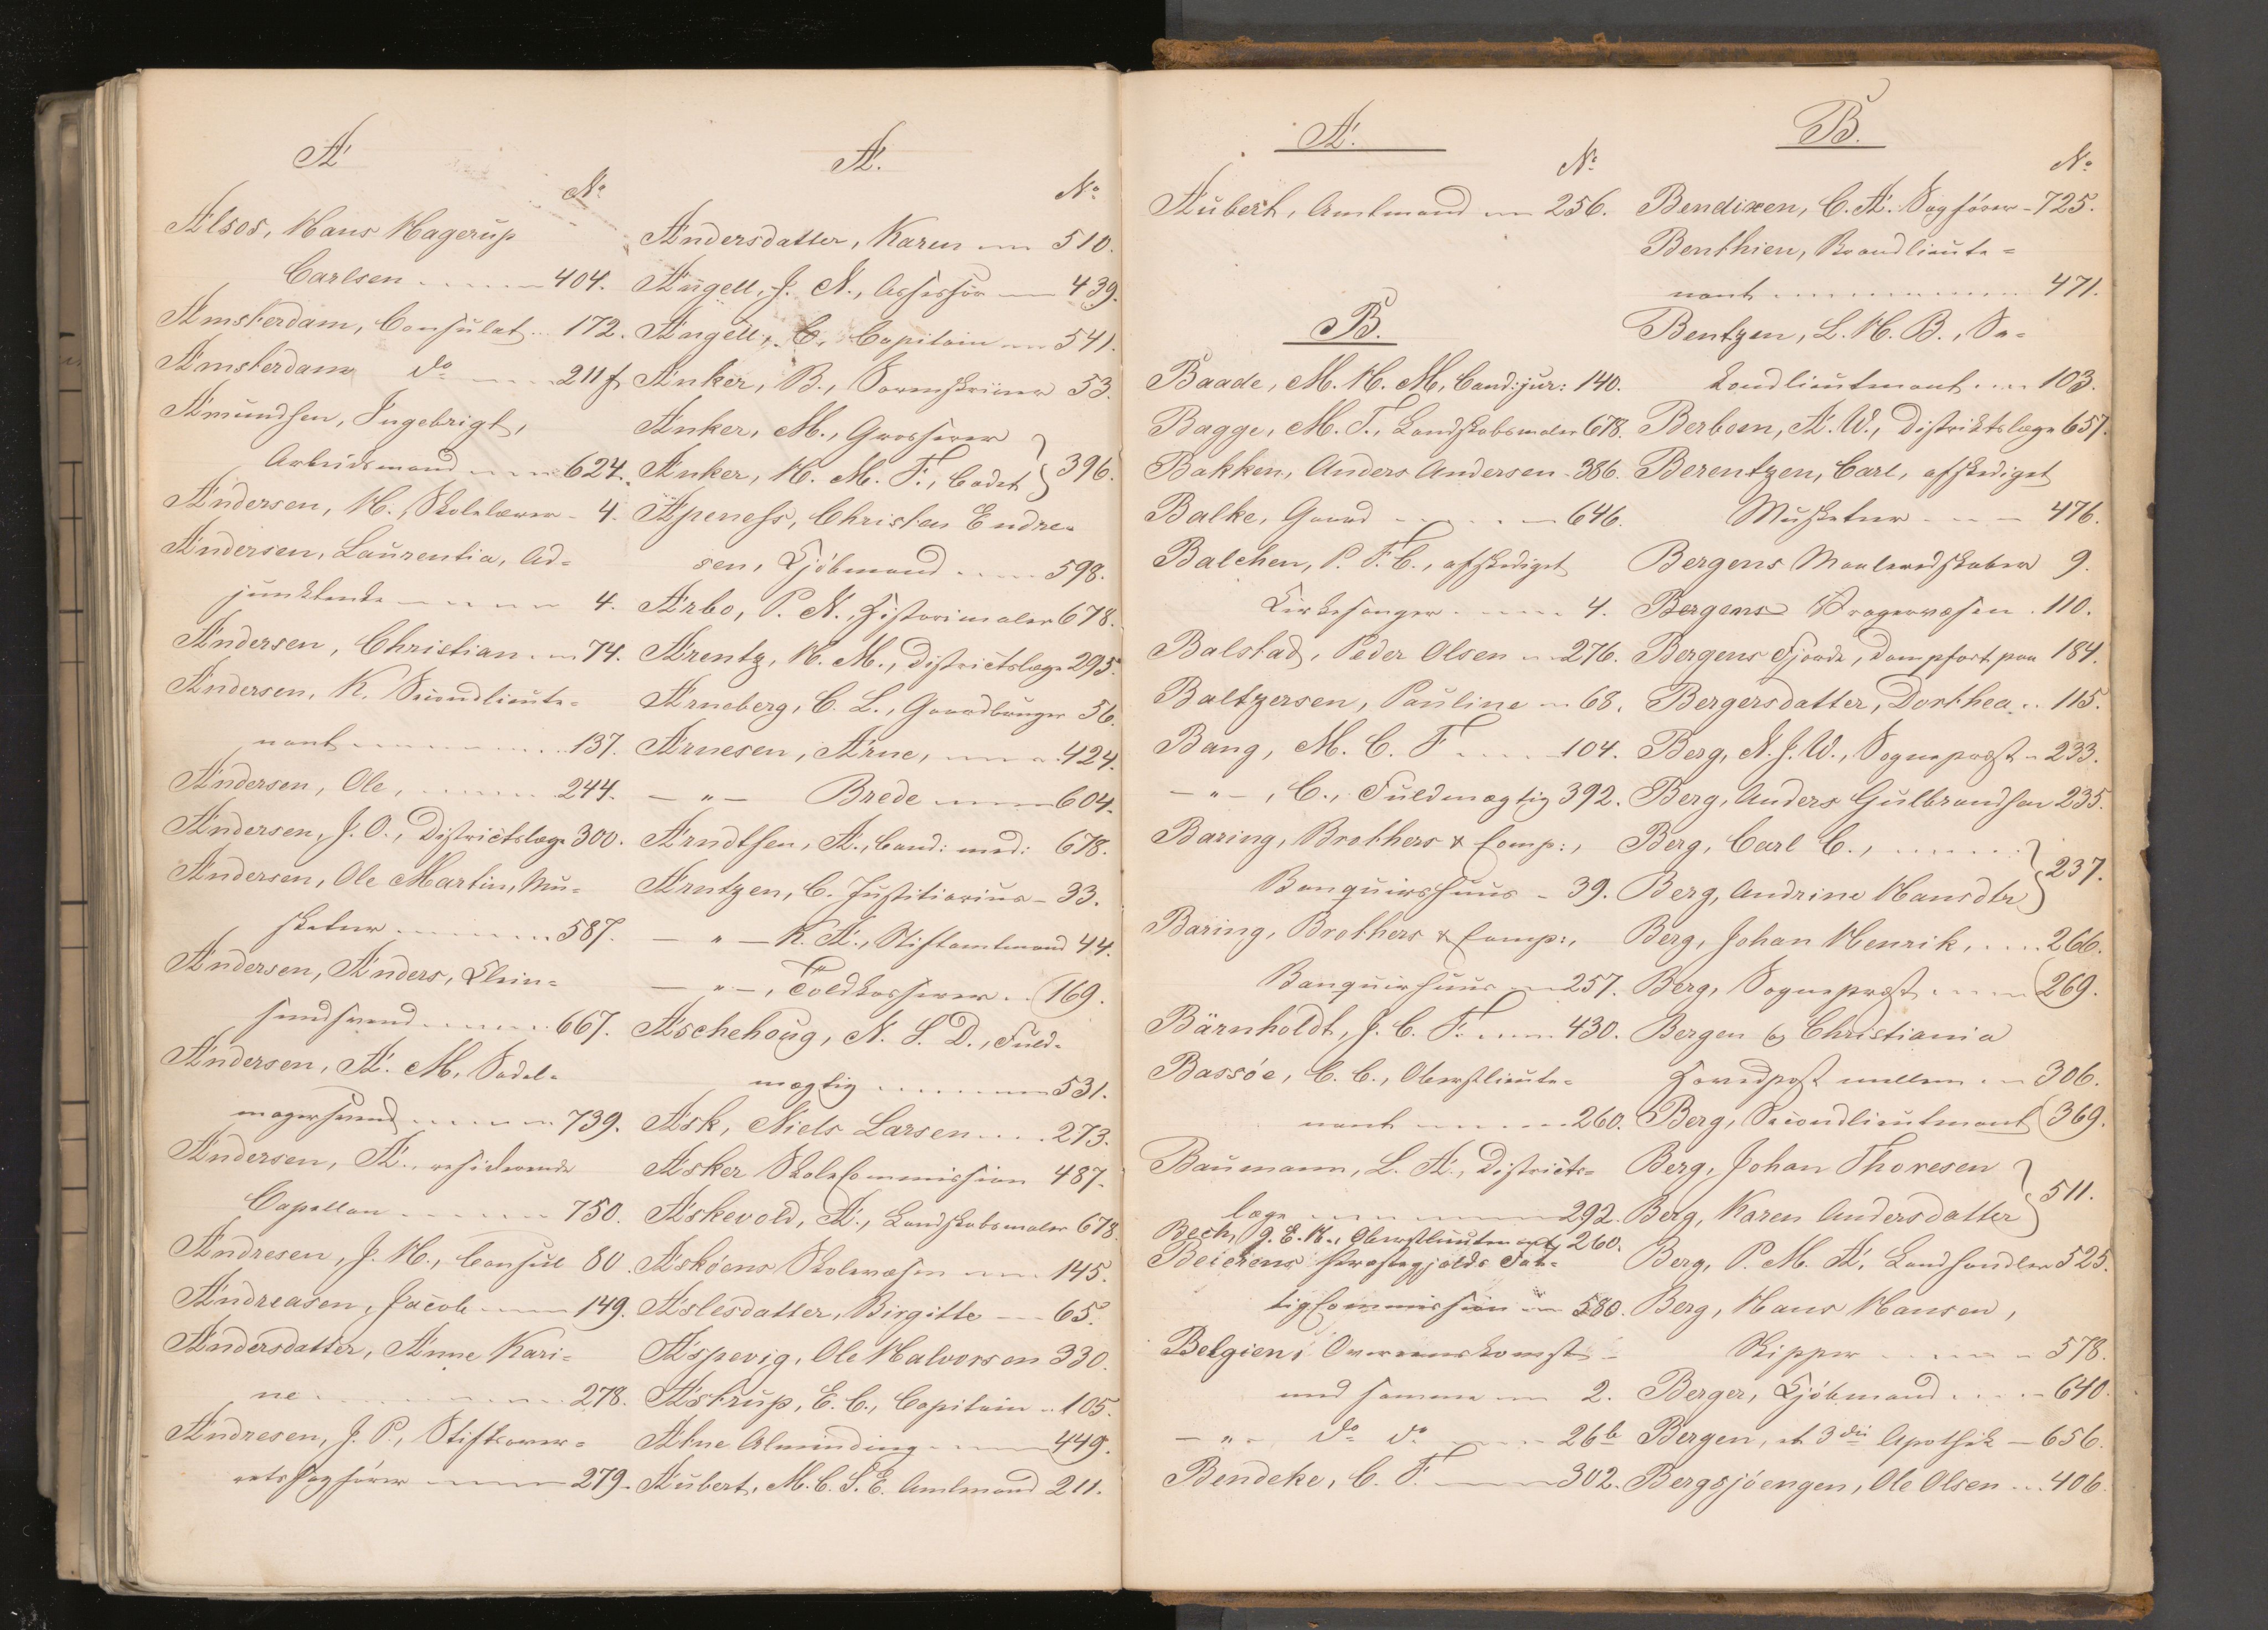 A
No
Alsos, Hans Hagerup
Carlsen 404.
Amsterdam, Consulat 172.
Amsterdam do 211 f
Amundsen, Ingebrigt,
Arbeidsmand 624.
Andersen, H., Skolelærer - 4.
Andersen, Laurentia, Ad-
junktenke 4.
Andersen, Christian 74.
Andersen, K. Secondlieute-
nant 137.
Andersen, Ole, 244.
Andersen, J. O., Districtslæge 300.
Andersen, Ole Martin, Mu-
sketeer 587.
Andersen, Anders,
667.
Andersen, A. M. Sadel-
magersvend 739.
Andersen, A., residerende
Capellan 750.
Andresen, J. H., Consul 80.
Andreasen, Jacob 149.
Andersdatter, Anne Kari-
ne 278.
Andresen, J. P., Stiftsover-
retssagfører 279.
A.
No
Andersdatter, Karen 510.
Angell, J. N., Assessor 439.
Angell, C., Capitain 541.
Anker, B., Sorenskriver 53.
Anker, M., Grosserer
Anker, H. M. F., Cadet } 396.
Apeness, Christen Endre-
sen, Kjöbmand 598.
Arbo, P. N., Historimaler 678.
Arentz, H. M., Districtslæge 295.
Arneberg, C. L., Gaardbruger 56.
Arnesen, Arne, 424.
— " — Brede 604.
Arndtsen, A., Cand: med: 678.
Arntzen, C. Justitiarius - 33.
— " — K. A., Stiftamtmand 44.
— " —, Toldkasserer 169.
Aschehoug, N. S. D., Fuld-
mægtig 531.
Ask, Niels Larsen 273.
Asker SkoleCommission 487.
Askevold, A., Landskabsmaler 678.
Askøens Skolevæsen 145.
Aslesdatter, Birgitte 65.
Aspevig, Ole Halvorsen 330.
Astrup, E. C., Capitain 105.
Atne Alminding 449.
Aubert, M. C. S. E. Amtmand 211.
A.
No
Aubert, Amtmand 256.
B.
Baade, M. H. M, Cand: jur: 140.
Bagge, M. T., Landskabsmaler 678.
Bakken, Anders Andersen - 386.
Balke, Gaard 646.
Balchen, P. F. C., afskediget
Kirkesanger 4.
Balstad, Peder Olsen 276.
Baltzersen, Pauline 68.
Bang, M. C. F 104.
— " —, C., Fuldmægtig 392.
Baring, Brothers & Comp:,
Banquierhuus - 39.
Baring, Brothers & Comp:,
Banquierhuus 257.
Bärnholdt, J. C. F. 430.
Bassöe, C. C., Oberstlieute-
nant 260.
Baumann, L. A., Districts-
læge 292.
Bech, J. E. K., Oberstlieutenant 260.
Beierens Præstegjelds Fat-
tigCommission 580.
Belgien, Overenskomst -
med samme 2.
— " — do do 26 b
Bendeke, C. F. 302.
B.
No
Bendixen, C. A. Sagfører - 725.
Benthien, Brandlieute-
nant 471.
Bentzen, L. H. B., Se-
kondlieutnant 103.
Berboen, A. W., Distriktslæge 657.
Berentzen, Carl, afskediget
Musketeer 476.
Bergens Maaleredskaber 9.
Bergens Dragervæsen 110.
Bergens Fjorde, Dampfart paa 184.
Bergersdatter, Dorthea 115.
Berg, N. J. W., Sognepræst - 233.
Berg, Anders Gulbrandsen 235.
Berg, Carl C.,
Berg, Andrine Hansdtr } 237.
Berg, Johan Henrik, 266.
Berg, Sognepræst 269.
Bergen og Christiania
Hovedpost mellem 306.
Berg, Secondlieutenant 369.
Berg, Johan Thoresen
Berg, Karen Andersdatter } 511.
Berg, P. M. A, Landhandler 525.
Berg, Hans Hansen,
Skipper 578.
Berger, Kjöbmand 640.
Bergen, et 3die Apothek - 656.
Bergsjöengen, Ole Olsen 406.